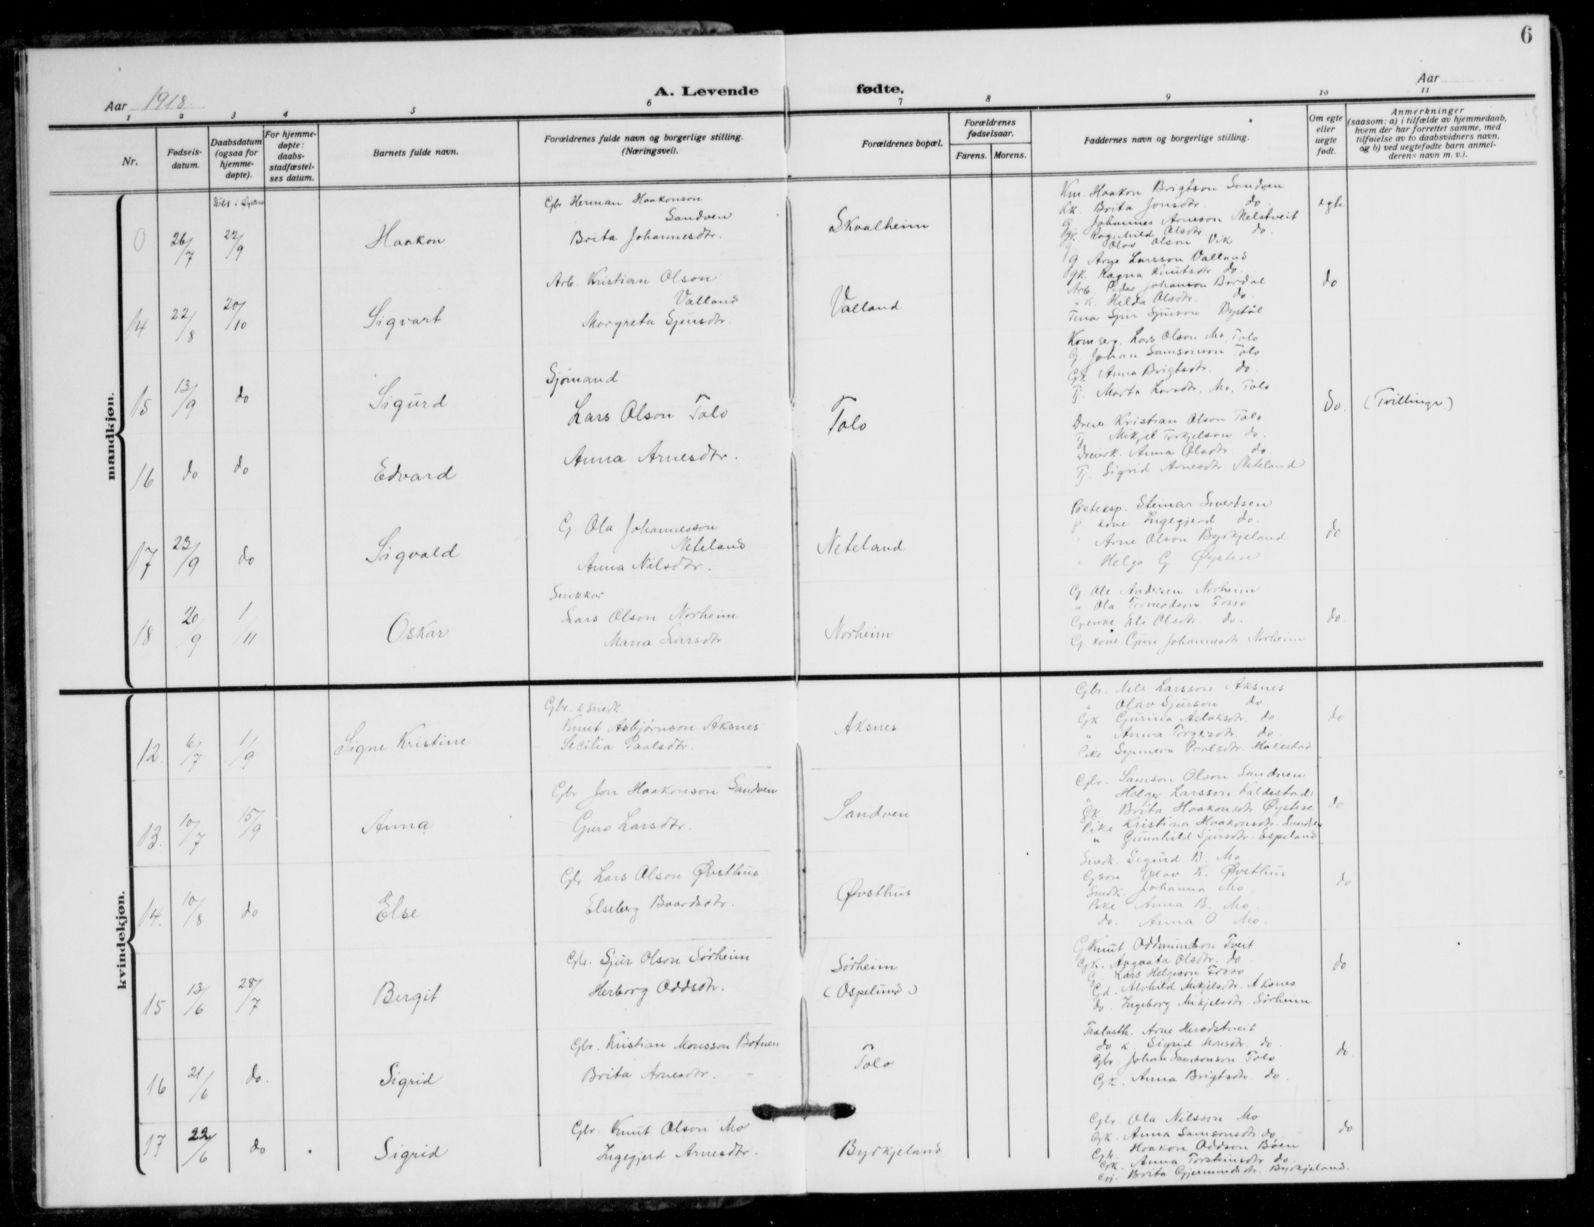 6
Aar 1918
A. Levende fødte.
Aar
1 2 3 4 5 6 7 8 9 10 11
Nr.
Fødsels-
datum.
Daabsdatum
(ogsaa for
hjemme-
døpte).
For hjemme-
døpte:
daabs-
stadfæstel-
ses datum.
Barnets fulde navn.
Forældrenes fulde navn og borgerlige stilling.
(Næringsvei).
Forældrenes bopæl.
Forældrenes
fødselsaar.
Farens. Morens.
Faddernes navn og borgerlige stilling.
Om egte
eller
uegte
født.
Anmerkninger
(saasom: a) i tilfælde av hjemmedaab,
hvem der har forrettet samme, med
tilføielse av to daabsvidners navn,
og b) ved uegtefødte barn anmel-
derens navn m. v.).
mandkjøn.
0 26/7 22/9 Haakon
Gbr Herman Haakonson
Sandven
Brita Johannesdtr.
Skaalheim
Km. Haakon Brigtson Sandven
Gk. Brita Jonsdtr. do.
G Johannes Arneson Melstveit
Gk. Ragnhild Olsdtr. do.
Olav Olson Vik
egte
14 22/8 20/10 Sigvart
Arb. Kristian Olson
Valland
Margreta Sjursdtr.
Valland
G Arne Larsson Valland
Gk. Ragna Knutsdtr do.
Arb. Peder Johanson Birdal
" k. Helga Olsdtr. do.
Tena Sjur Sjurson Bystøl
do
15 13/9 do Sigurd
Sjømand
Lars Olson Tolo
Tolo
Lars Olson Mo, Tolo
G. Johan Samsonson Tolo
Gk Anna Brigtsdtr. do.
Marta Larsdtr. Mo, Tolo
do. (Tvillinger)
16 do do Edvard
Anna Arnesdtr.
Kristian Olson Tolo
Mikjel Torkjelson do.
Anna Olsdtr do
Sigrid Arnesdtr Neteland
17 23/9 do Sigvald
G. Ola Johannesson
Neteland
Anna Nilsdtr.
Neteland
Posteksp. Steinar Sivertsen
" kone Ingegjerd do.
" Arne Olson Byrkjeland
" Helge G Øystese
do
18 20/9 1/11 Oskar
Snikkar
Lars Olson Norheim
Maria Larsdtr
Norheim
G Ole Andersen Norheim
" Ola Tormodson Fosso
Els Olsdtr. do.
G. kone Guri Johannesdtr Norheim
do.
kvindekjøn.
12 6/7 1/9 Signe Kristine
Gbr. & smed
Knut Asbjørnson Aksnes
Secilia Paalsdtr.
Aksnes
Gbr. Nils Larsson Aksnes
" Olav Sjurson do
Gk Gurina Aslaksdtr. do.
" Anna Torgersdtr. do.
Pike Synneva Paalsdtr.
do
13. 10/7 15/9 Anna
Gbr Jon Haakonson Sandven
Guro Larsdtr.
Sandven
Gbr. Samson Olson Sandven
" Helge Larsson
Gk. Brita Haakonsdtr Øystese
Pike Kristina Haakonsdtr. Sandven
" Gunnhild Sjursdtr. Espeland
do
14. 10/8 do Else
Gbr Lars Olson Øvsthus
Elseberg Baardsdtr.
Øvsthus
Smedk. Sigurd B. Mo
Gson Olav K. Øvsthus
Smdk. Johanna Mo
Pike Anna B. Mo
do. Anna O Mo.
do
15 13/6 28/7 Bergit
Gbr. Sjur Olson Sørheim
Herborg Oddsdtr.
Sørheim
(Ospelund)
G Knut Oddmundson Tveit
Gk. Aagaata Olsdtr. do
G Lars Helgeson Fosso
Gd. Alvhild Mikjelsdtr. Aksnes
do. Ingeborg Mikjelsdtr. Sørheim
do
16 21/6 do. Sigrid
Gbr. Kristian Monsson Botnen
Brita Arnesdtr.
Tolo
Arne Herødstveit
do k. Sigrid Monsdtr. do.
Gbr. Johan Samsonson Tolo
Gk. Anna Brigtsdtr. do.
do.
17 22/6 do Sigrid
Gbr. Knut Olson Mo
Ingegjerd Arnesdtr.
Byrkjeland
Gbr Ola Nilsson Mo
Gk. Anna Samsonsdtr do.
Gbr. Haakon Oddson Bøen
Gk. Anna Torsteinsdtr do.
Brita Gjermundsdtr. Byrkjeland.
do